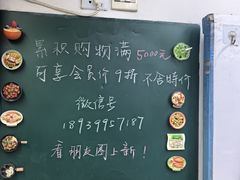 累积购物满5000元
可享会员价9折 不含特价
微信号
18939957187
看朋友圈上新！